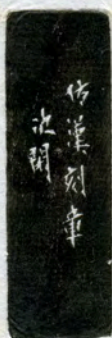 仿漢刻章
沈閱